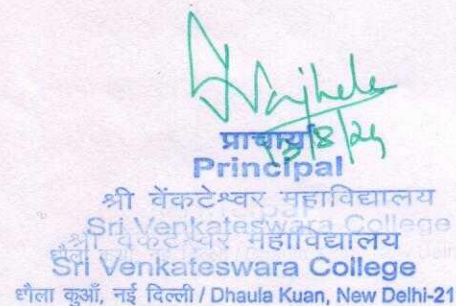 प्राचार्या
13/8/24
Principal
श्री वेंकटेश्वर महाविद्यालय
Sri Venkateswara College
श्री वेंकटेश्वर महाविद्यालय
Sri Venkateswara College
धौला कुआँ, नई दिल्ली / Dhaula Kuan, New Delhi-21